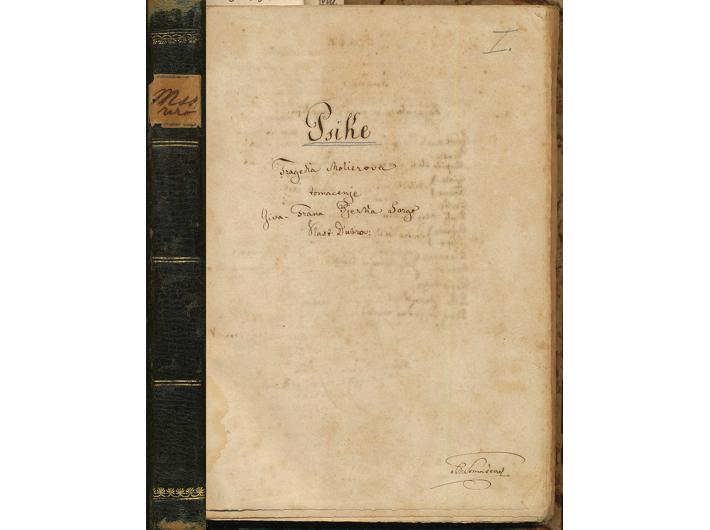 I.
Psike
Tragedia Molierova
tomacenje
Giva-Frana Pjerka Sorgo
Vlast Dubrov:
Mss